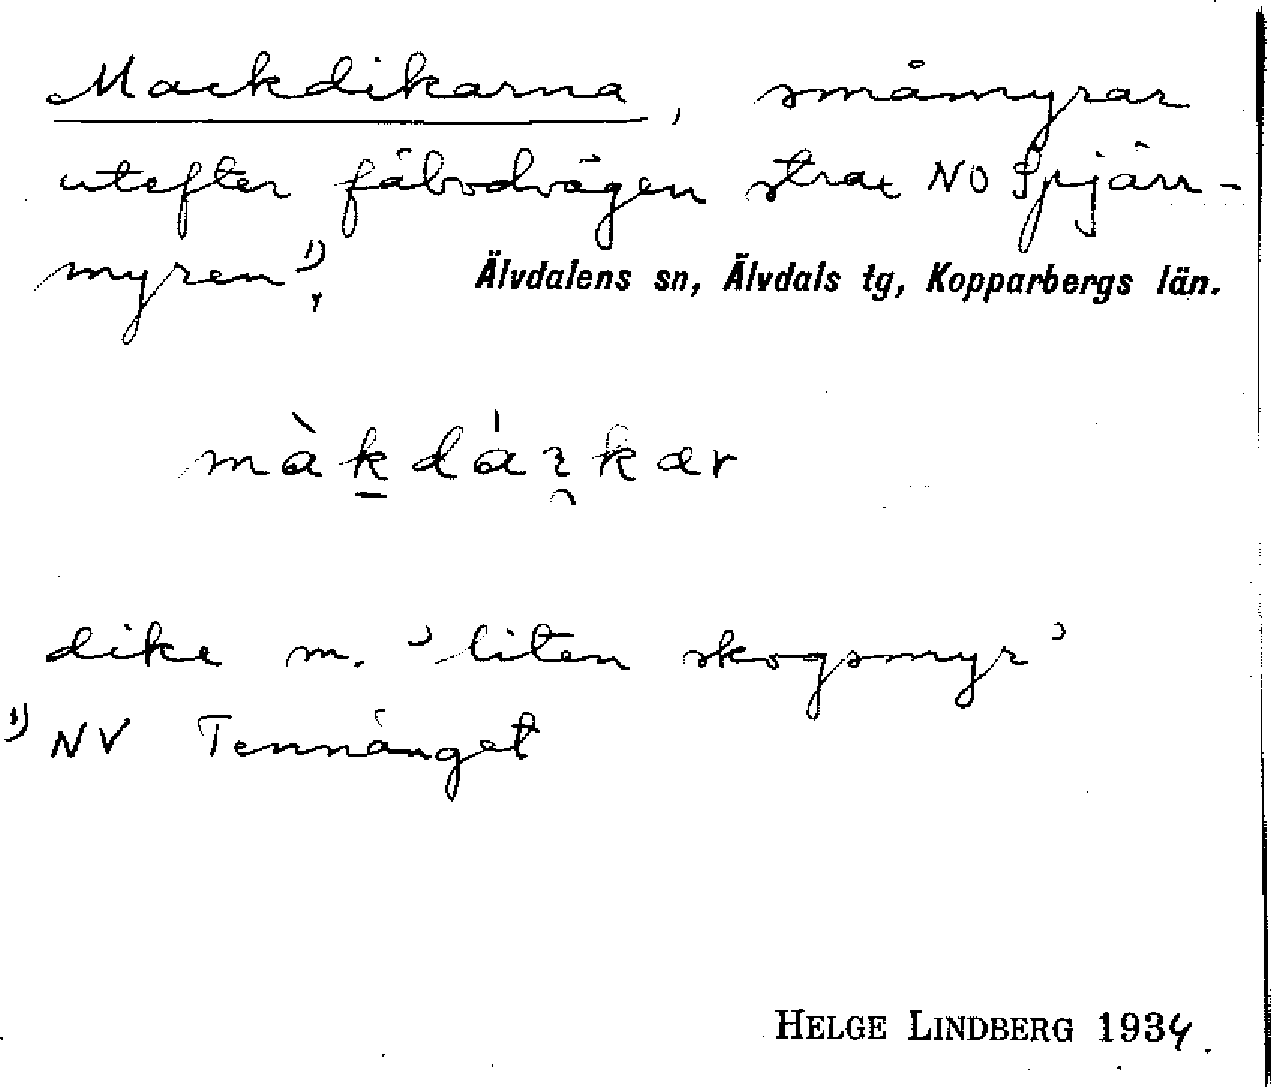 Mackdikarna, småmyrar
utefter fäbodvägen strax NO Spjärr-
myren¹⁾,
Älvdalens sn, Älvdals tg, Kopparbergs län.
màk̲dáɿ̯kær
dike m. 'liten skogsmyr'
¹⁾ NV Tennänget
HELGE LINDBERG 1934.